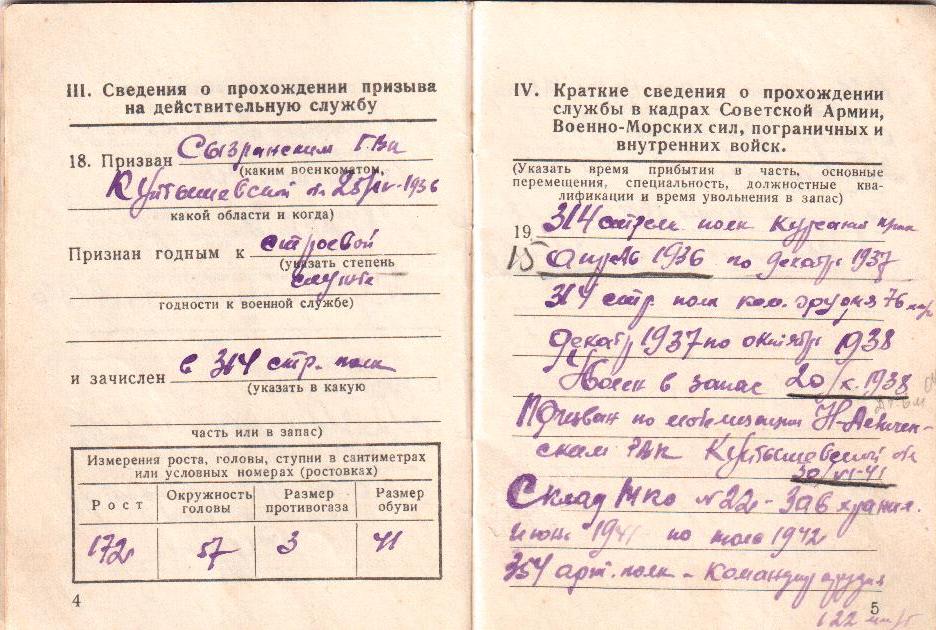 III. Сведения о прохождении призыва
на действительную службу
18. Призван Сызранским ГВК
(каким военкоматом,
Куйбышевской об. 1936
какой области и когда)
Признан годным к строевой
(указать степень
службе
годности к военной службе)
и зачислен в 314 стр. полк
(указать в какую
часть или в запас)
Измерения роста, головы, ступни в сантиметрах
или условных номерах (ростовках)
Рост Окружность головы Размер противогаза Размер обуви
172 57 3 41
4
IV. Краткие сведения о прохождении
службы в кадрах Советской Армии,
Военно-Морских сил, пограничных и
внутренних войск.
(Указать время прибытия в часть, основные
перемещения, специальность, должностные ква-
лификации и время увольнения в запас)
19 314 стрелк полк курсант
15 апрель 1936 по декабрь 1937
314 стр. полк ком. орудия 76
декабр 1937 по октябрь 1938
Уволен в запас 20/X. 1938
Призван по мобилизации
РВК Куйбышевской об
30/VI-41
Склад НКО №22 - Зав хранил.
июнь 1941 по 1942
354 арт. полк - командир орудия
5
122 мм